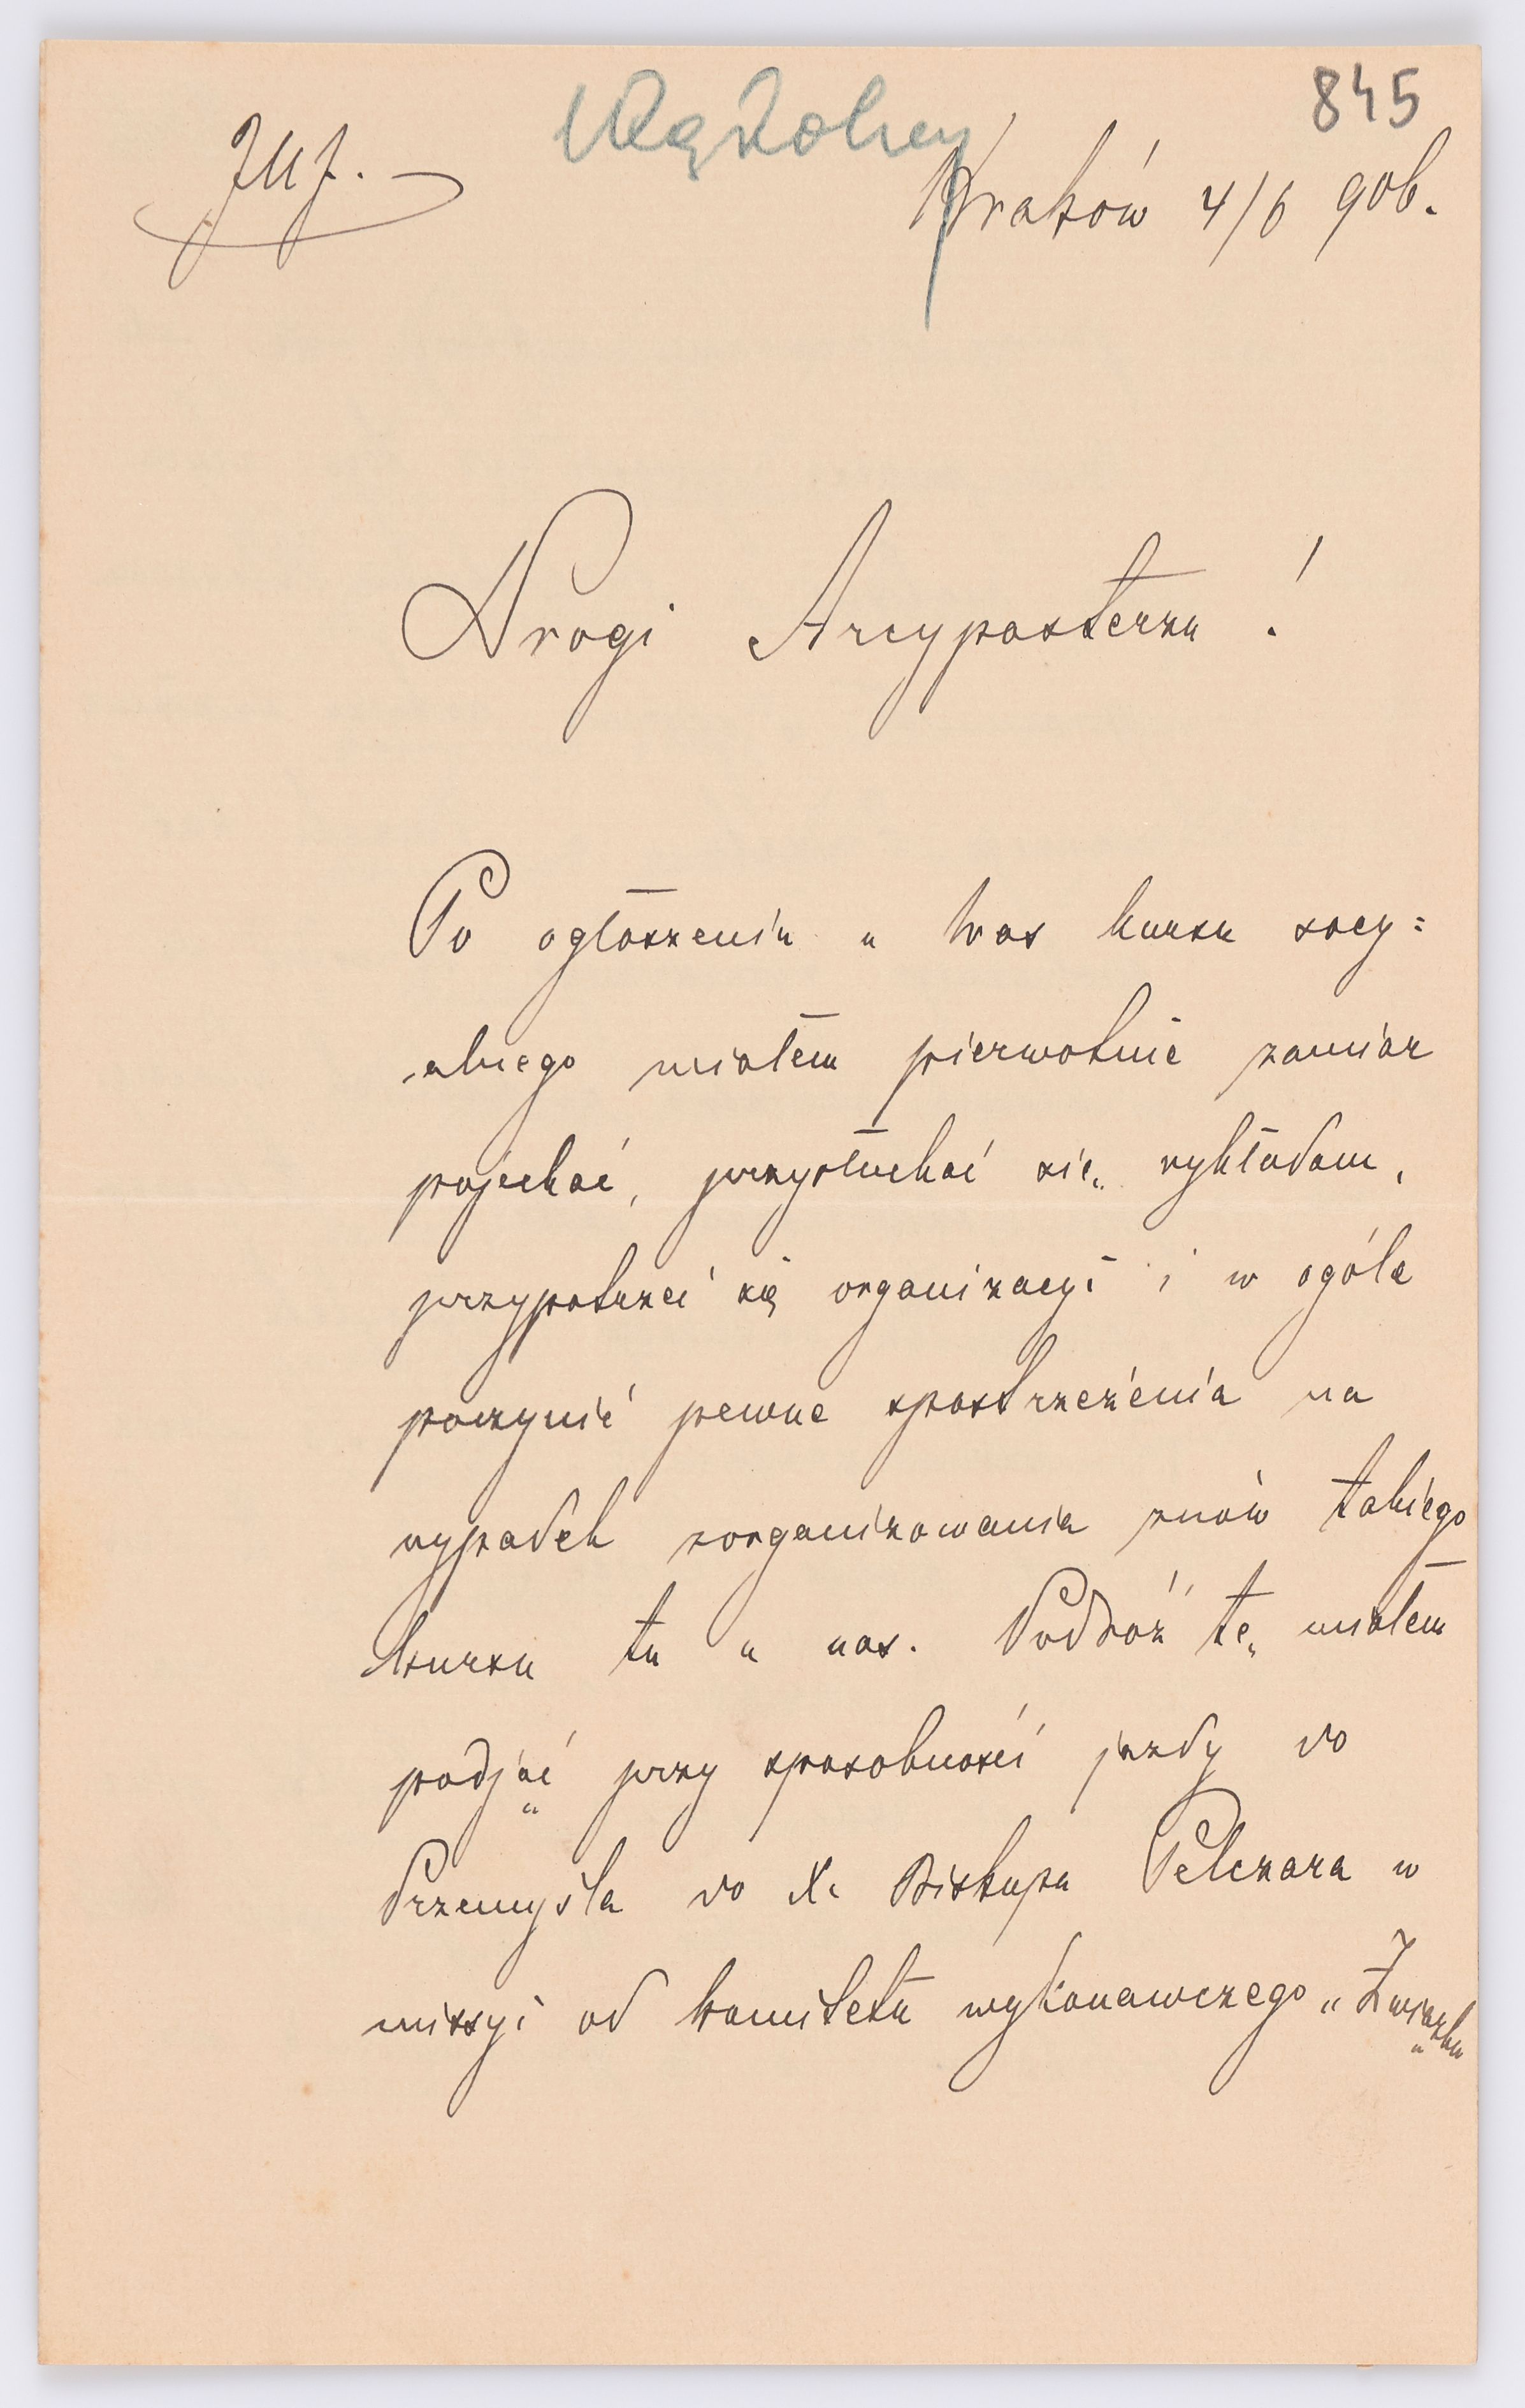 845
Wądolny
JMJ.
Kraków 4/6 906.
Drogi Arcypasterzu!
Po ogłoszeniu u Was kursu socy=
alnego miałem pierwotnie zamiar
pojechać, przysłuchać się wykładom,
przypatrzeć się organizacyi i w ogóle
poczynić pewne spostrzeżenia na
wypadek zorganizowania znów takiego
kursu tu u nas. Podróż tę miałem
podjąć przy sposobności jazdy do
Przemyśla do X. Biskupa Pelczara w
missyi od komitetu wykonawczego „Związku